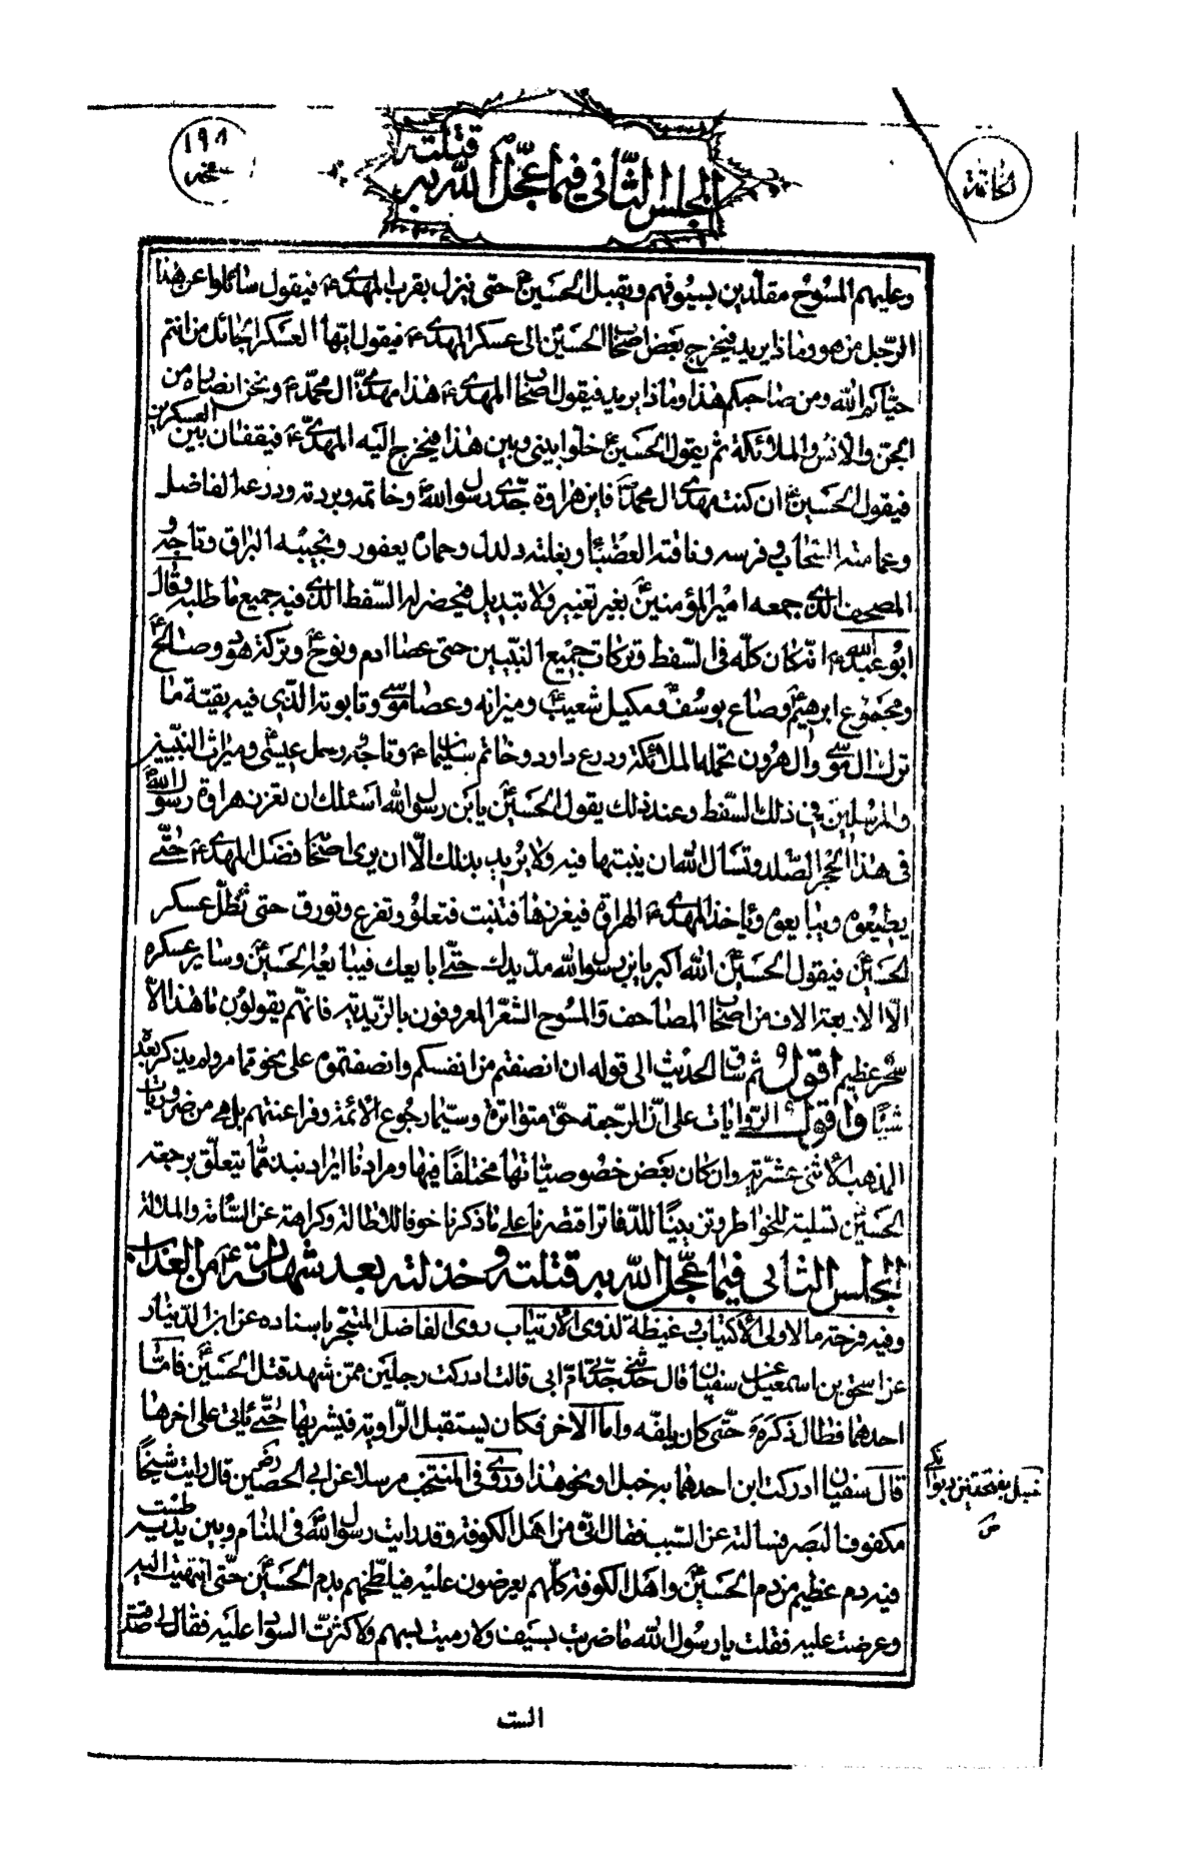 الخاتمة
المجلس الثاني فيما عجّل الله به قتلته
١٩٨
صفحه
وعليهم المسوح مقلّدين بسيوفهم ويقبل الحسين ع حتى ينزل بقرب المهدي ع فيقول سائلوا عن هذا
الرّجل من هو وماذا يريد فيخرج بعض اصحاب الحسين الى عسكر المهدي ع فيقول ايها العسكر الجائل من انتم
حيّاكم الله ومن صاحبكم هذا وماذا يريد فيقول اصحاب المهدي ع هذا مهديّ ال محمّد ع ونحن انصاره من
الجن والانس والملائكة ثم يقول الحسين ع خلّوا بيني وبين هذا فيخرج اليه المهديّ ع فيقفان بين العسكرين
فيقول الحسين ع ان كنت مهدي ال محمد ص فاين هراوة جدّي رسول الله ص وخاتمه وبردته ودرعه الفاضل
وعمامته السّحاب وفرسه وناقته العضباء وبغلته دلدل وحماره يعفور ونجيبه البراق وتاجه و
المصحف الذي جمعه امير المؤمنين ع بغير تغيير ولا تبديل فيحضر له السّفط الذي فيه جميع ما طلبه وقال
ابو عبد الله ع انّه كان كلّه في السّفط وتركات جميع النبيّين حتى عصا ادم ونوح ع وتركة هود وصالح ع
ومجموع ابرهيم ع وصاع يوسف ع ومكيل شعيب ع وميزانه وعصا موسى وتابوته الذي فيه بقيّة ما
ترك ال موسى وال هرون تحمله الملائكة ودرع داود وخاتم سليمان ع وتاجه ورحل عيسى ع وميراث النبيّين
والمرسلين في ذلك السّفط وعند ذلك يقول الحسين ع يابن رسول الله اسئلك ان تغرز هراوة رسول الله ص
في هذا الحجر الصّلد وتسأل الله ان ينبتها فيه ولا يريد بذلك الّا ان يرى اصحابه فضل المهدي ع حتّى
يطيعوه ويبايعوه وياخذ المهدي ع الهراوة فيغرزها فتنبت فتعلو وتفرع وتورق حتى تظلّ عسكر
الحسين ع فيقول الحسين ع الله اكبر يابن رسول الله مدّ يدك حتّى ابايعك فيبايعه الحسين ع وساير عسكره
الّا الاربعة الاف من اصحاب المصاحف والمسوح الشّعر المعروفون بالزّيدية فانّهم يقولون ما هذا الّا
سحر عظيم اقول ثم ساق الحديث الى قوله ان انصفتم من انفسكم وانصفتموه على نحو ما مر ولم يذكر بعده
شيئا واقول الرّوايات على انّ الرّجعة حقّ متواترة وسيّما رجوع الائمة وفراعنتهم بل هي من ضروريات
المذهب الاثني عشرية وان كان بعض خصوصيّاتها مختلفًا فيها ومرادنا ايراد نبد ممّا يتعلّق برجعة
الحسين ع تسلية للخواطر وتزيينًا للدّفاتر اقتصرنا على ما ذكرنا خوفا للاطالة وكراهة عن السّامة والملالة
المجلس الثاني فيما عجّل الله به قتلته و خذلته بعد شهادته ع من العذاب
وفيه فرحة ما لاولى الاكتياب وغيظة لذوي الارتياب روى الفاضل المتبحّر باسناده عن ابن الدينار
عن اسحق بن اسمعيل عن سفيان قال حدّثتني جدّتي امّ ابي قالت ادركت رجلين ممّن شهد قتل الحسين ع فامّا
احدهما فطال ذكره حتّى كان يلفّه وامّا الاخر فكان يستقبل الرّاوية فيشربها حتّى ياتي على اخرها
قال سفيان ادركت ابن احدهما به خبل او نحو هذا وروي في المنتخب مرسلا عن ابي الحصين قال رايت شيخًا
مكفوف البصر فسالته عن السّبب فقال انّي من اهل الكوفة وقد رايت رسول الله ص في المنام وبين يديه طشت
فيه دم عظيم من دم الحسين ع واهل الكوفة كلّهم يعرضون عليه فيلطّخهم بدم الحسين ع حتّى انتهيت اليه
وعرضت عليه فقلت يا رسول الله ما ضربت بسيف ولا رميت بسهم ولا كثرت السواد عليه فقال لي صدقت
خبل بفتحتين ديوانكي
ص
الست